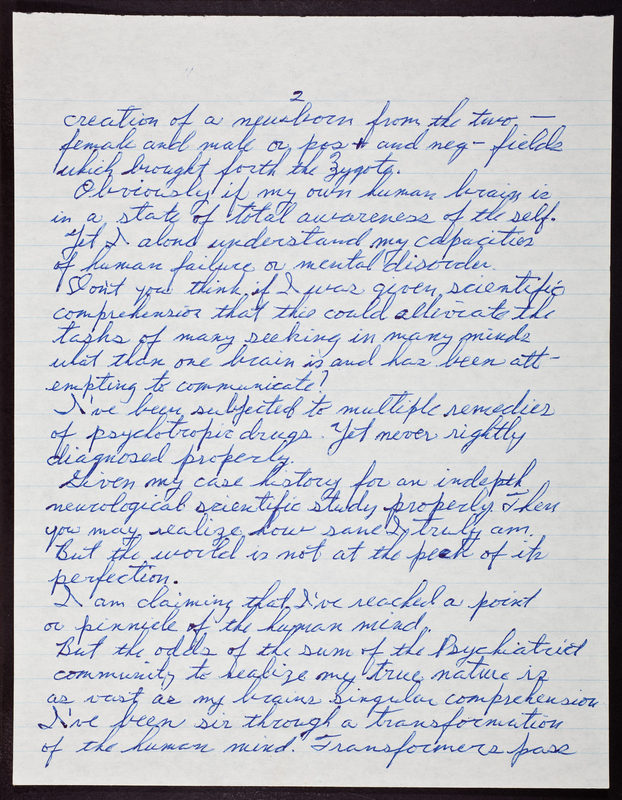 2
creation of a newborn from the two —
female and male or pos + and neg - fields
which brought forth the Zygote.
Obviously if my own human brain is
in a state of total awareness of the self.
Yet I alone understand my capacities
of human failure or mental disorder.
Don't you think if I was given scientific
comprehension that this could alleviate the
tasks of many seeking in many minds
what than one brain is and has been att-
empting to communicate?
I've been subjected to multiple remedies
of psychotropic drugs. Yet never rightly
diagnosed properly.
Given my case history for an indepth
neurological scientific study properly. Then
you may realize how sane I truly am.
But the world is not at the peak of its
perfection.
I am claiming that I've reached a point
or pinnicle of the human mind.
But the odds of the sum of the Psychiatrist
community to realize my true nature is
as vast as my brains singular comprehension.
I've been sir through a transformation
of the human mind. Transformers pass